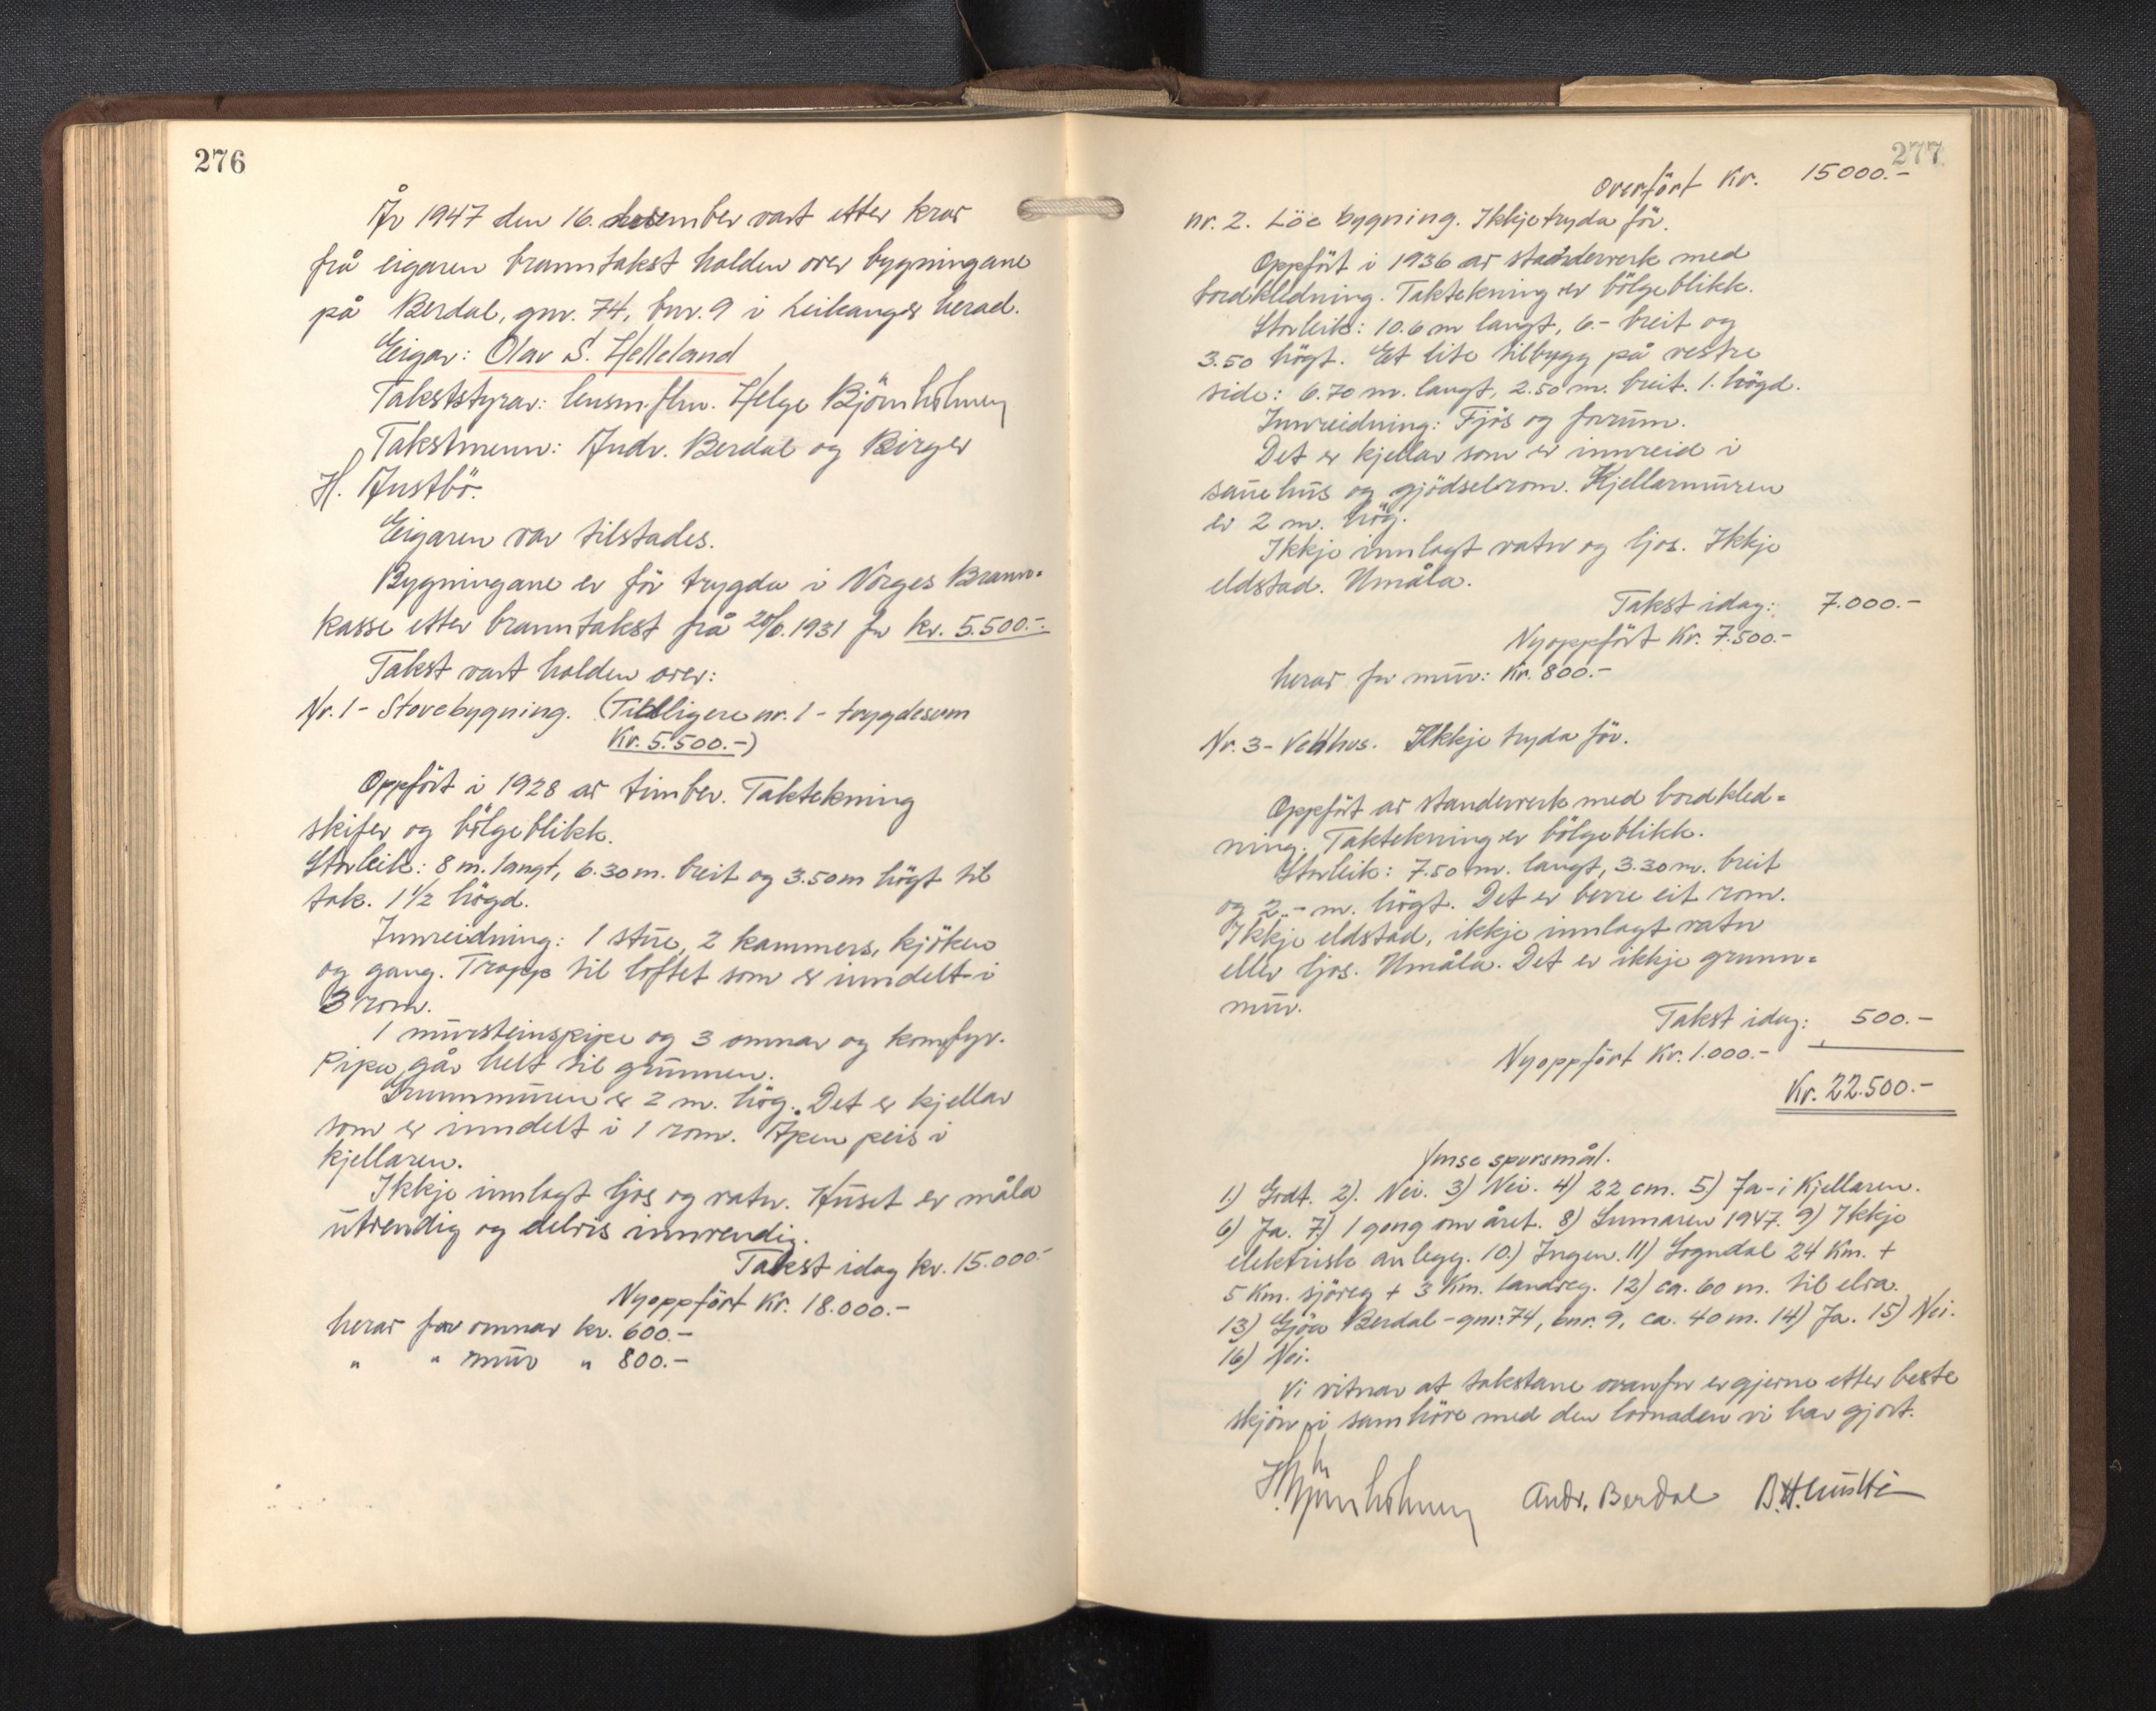 276
År 1947 den 16. desember vart etter krav
frå eigaren branntakst halden over bygningane
på Berdal, gnr. 74, bnr. 9 i Leikanger herad.
Eigar: Olav S. Helleland
Takststyrar: lensm.flm. Helge Björnholmen
Takstmenn: Andr. Berdal og Birger
H. Austbö.
Eigaren var tilstades.
Bygningane er för trygda i Norges Brann-
kasse etter branntakst frå 20/6.1931 for kr. 5.500.-.
Takst vart halden over:
Nr. 1 - Stovebygning. (Tidligere nr. 1 - trygdesum
Kr. 5.500.-)
Oppfört i 1928 av timber. Taktekning
skifer og bölgeblikk.
Storleik: 8 m. langt, 6.30 m. breit og 3.50 m högt til
tak. 1 1/2 högd.
Innreidning: 1 stue, 2 kammers, kjöken
og gang. Trapp til loftet som er inndelt i
3 rom.
1 mursteinspipe og 3 omnar og komfyr.
Pipa går helt til grunnen.
Grunnmuren er 2 m. hög. Det er kjellar
som er inndelt i 1 rom. Åpen peis i
kjellaren.
Ikkje innlagt ljos og vatn. Huset er måla
utvendig og delvis innvendig.
Takst idag kr. 15.000.-
Nyoppfört Kr. 18.000.-
herav for omnar kr. 600.-
" " mur " 800.-
277
Overfört Kr. 15000.-
nr. 2. Löe bygning. Ikkje tryda för.
Oppfört i 1936 av standerverk med
bordkledning. Taktekning er bölgeblikk.
Storleik: 10.6 m langt, 6.- breit og
3.50 högt. Et lite tilbygg på vestre
side: 6.70 m. langt, 2.50 m. breit. 1. högd.
Innreidning: Fjös og forrum.
Det er kjellar som er innreid i
sauehus og gjödselsrom. Kjellarmuren
er 2 m. hög.
Ikkje innlagt vatn og ljos. Ikkje
eldstad. Umåla.
Takst idag: 7.000.-
Nyoppfört Kr. 7.500.-
herav for mur: Kr. 800.-
Nr. 3 - Vedhus. Ikkje tryda för.
Oppfört av standerverk med bordkled=
ning. Taktekning er bölgeblikk.
Storleik: 7.50 m. langt, 3.30 m. breit
og 2.- m. högt. Det er berre eit rom.
Ikkje eldstad, ikkje innlagt vatn
eller ljos. Umåla. Det er ikkje grunn=
mur.
Takst idag: 500.-
Nyoppfört Kr. 1.000.-
Kr. 22.500.-
Ymse spursmål.
1) Godt. 2). Nei. 3) Nei. 4) 22 cm. 5) Ja - i Kjellaren.
6) Ja. 7) 1 gong om året. 8) Sumaren 1947. 9) Ikkje
elektrisk anlegg. 10.) Ingen. 11) Sogndal 24 Km. +
5 Km. sjöveg + 3 Km. landveg. 12) ca. 60 m. til elva.
13) Gjöa Berdal - gnr. 74, bnr. 9, ca. 40 m. 14) Ja. 15) Nei.
16) Nei.
Vi vitnar at takstane ovanfor er gjerne etter beste
skjön i samhöve med den lovnaden vi har gjort.
H. Björnholmen Andr. Berdal B. H. Austbö